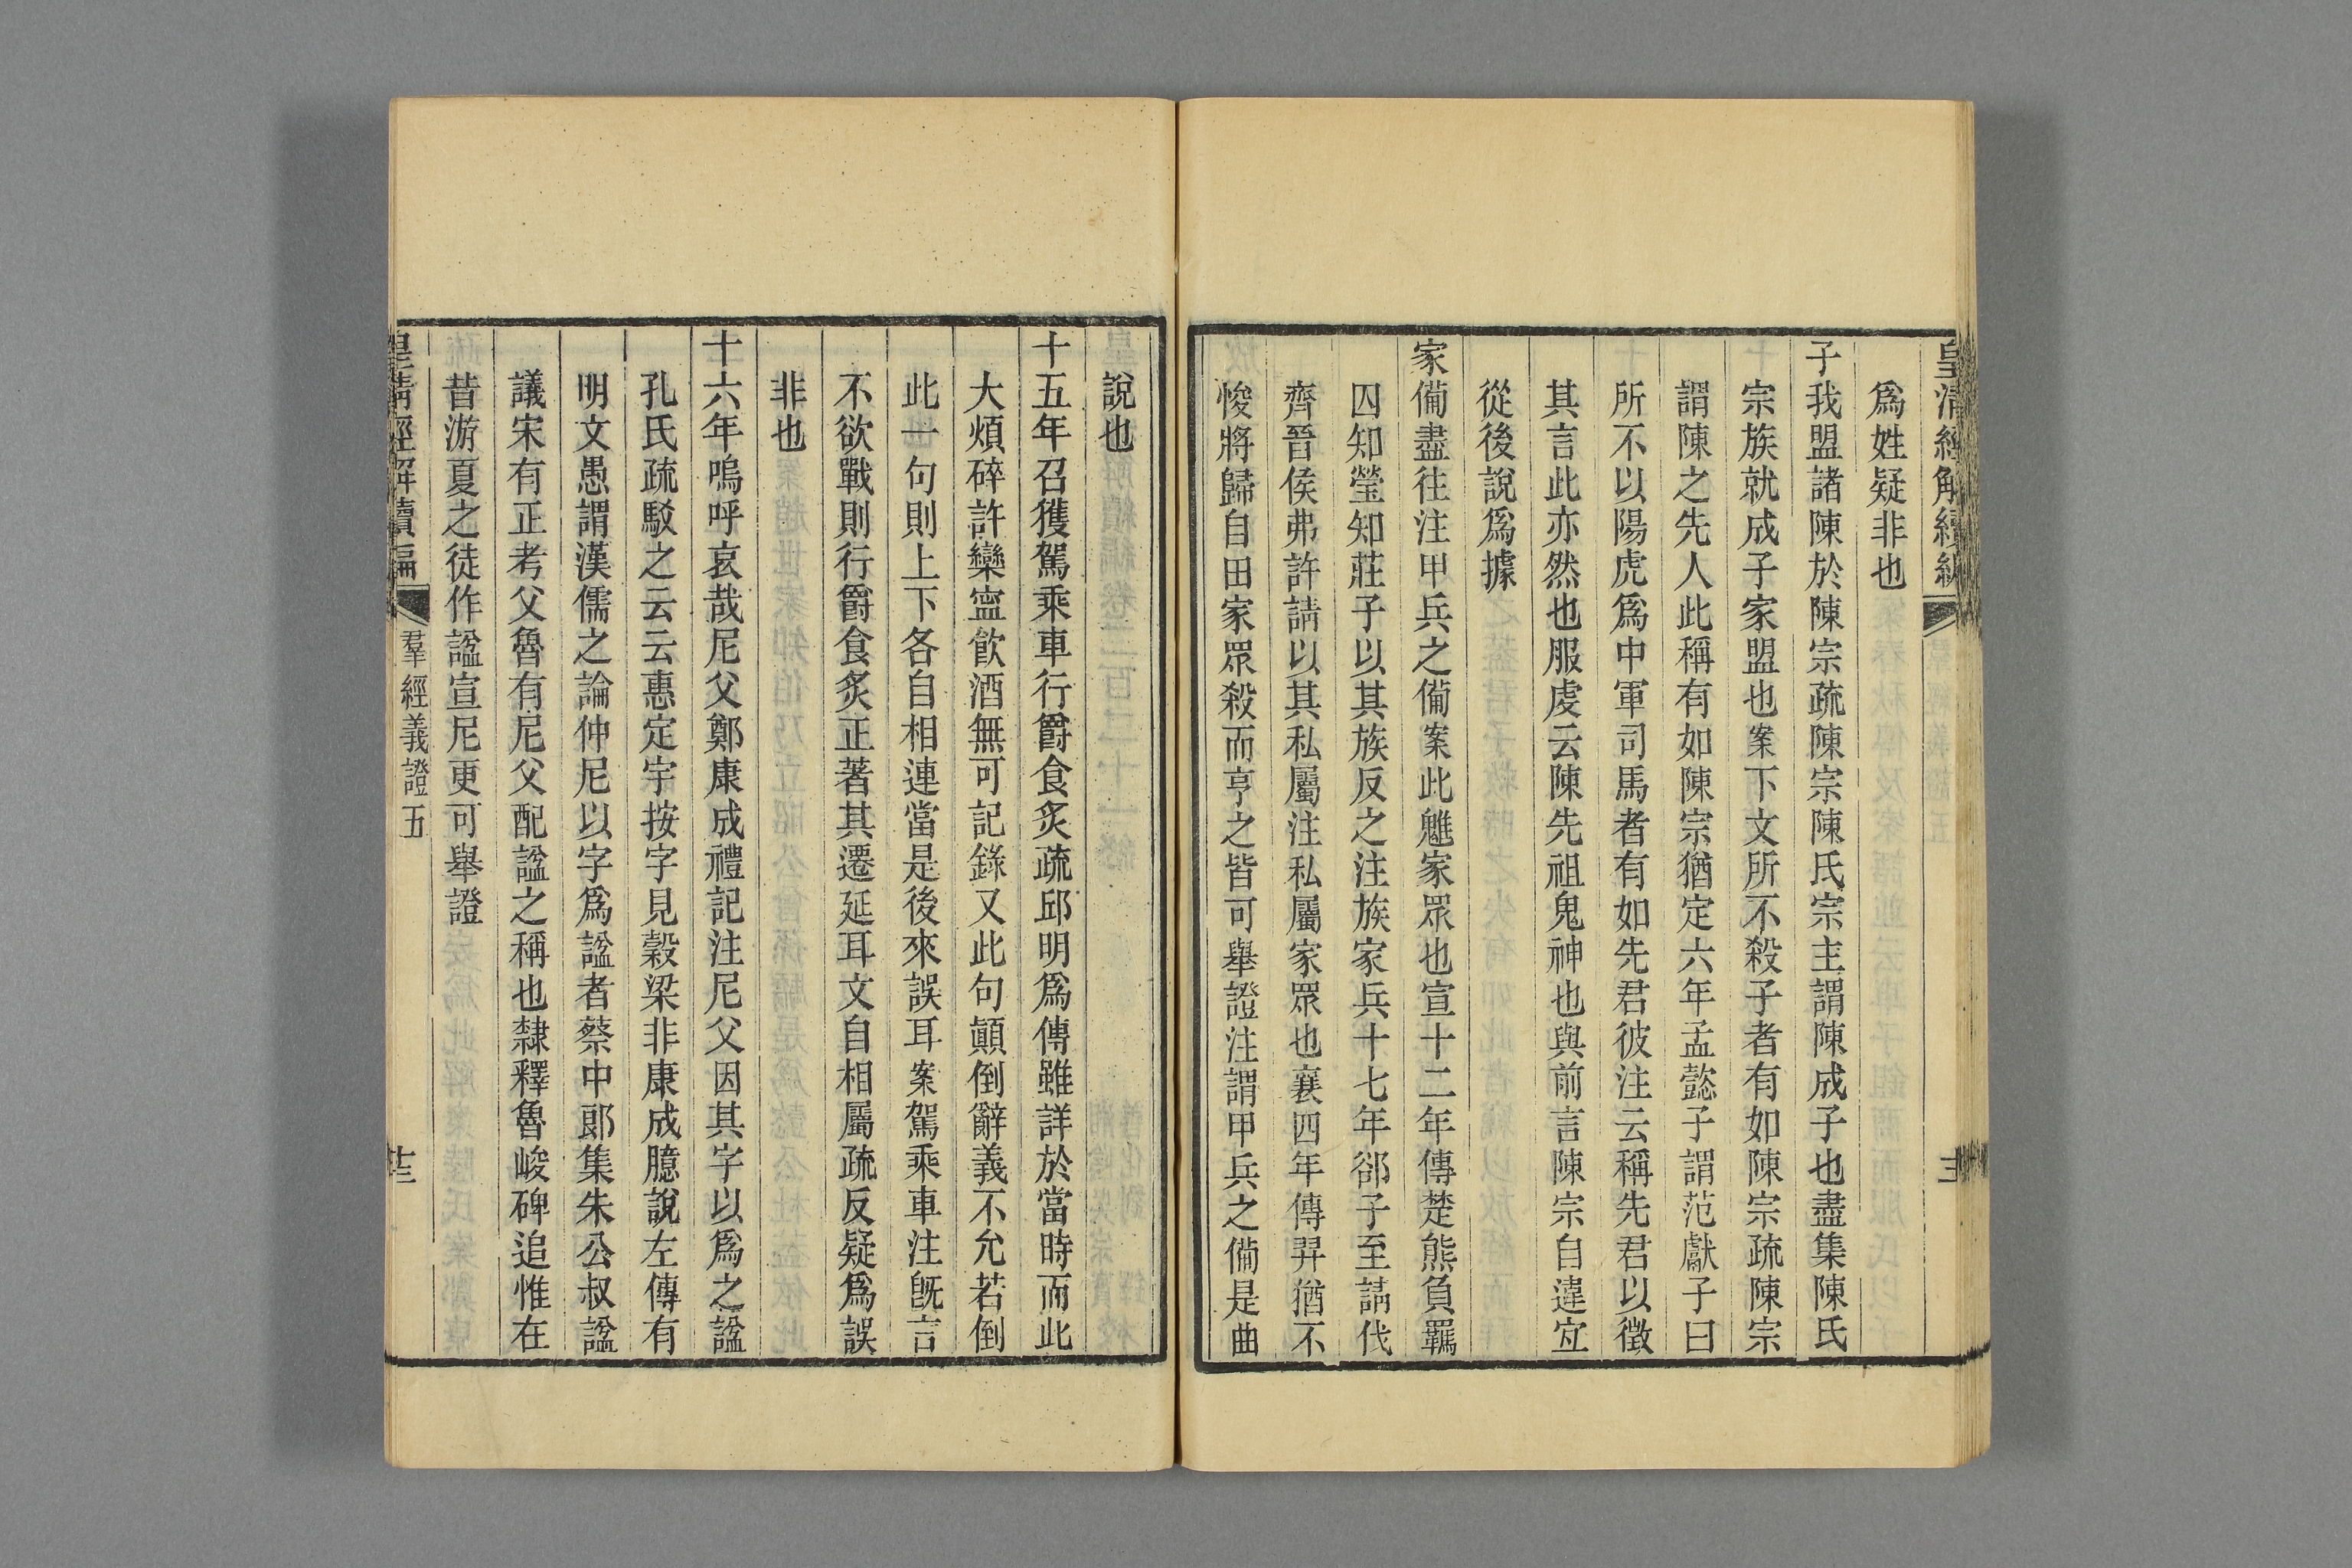 皇清經解續編
爲姓疑非也
子我盟諸陳於陳宗疏陳宗陳氏宗主謂陳成子也盡集陳氏
宗族就成子家盟也案下文所不殺子者有如陳宗疏陳宗
謂陳之先人此稱有如陳宗猶定六年孟懿子謂范獻子曰
所不以陽虎爲中軍司馬者有如先君彼注云稱先君以徵
其言此亦然也服虔云陳先祖鬼神也與前言陳宗自違宐
從後說爲據
家僃盡往注甲兵之僃案此魋家眾也宣十二年傳楚熊負羈
囚知罃知莊子以其族反之注族家兵十七年郤子至請伐
齊晉侯弗許請以其私屬注私屬家眾也襄四年傳羿猶不
悛將歸自田家眾殺而亨之皆可舉證注謂甲兵之僃是曲
說也
十五年召獲駕乘車行爵食炙疏邱明爲傳雖詳於當時而此
大煩碎許欒寍飮酒無可記錄又此句顚倒辭義不允若倒
此一句則上下各自相連當是後來誤耳案駕乘車注旣言
不欲戰則行爵食炙正著其遷延耳文自相屬疏反疑爲誤
非也
十六年嗚呼哀哉尼父鄭康成禮記注尼父因其字以爲之諡
孔氏疏駮之云云惠定宇按字見穀梁非康成臆說左傳有
明文愚謂漢儒之論仲尼以字爲諡者蔡中郞集朱公叔諡
議宋有正考父魯有尼父配諡之稱也隸釋魯峻碑追惟在
昔游夏之徒作諡宣尼更可舉證
皇淸經解續編
羣經義證五